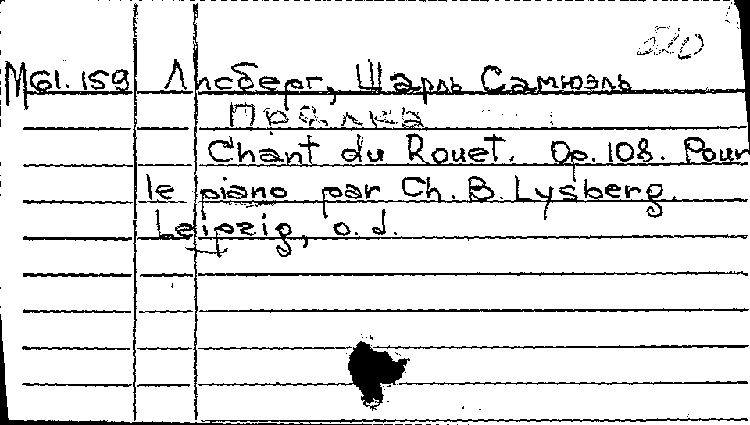 М61.159 Лисберг, Шарль Самюэль
Прялка
Chant du Rouet. Op. 108. Pour
le piano par Ch. B. Lysberg.
Leipzig, o. J.